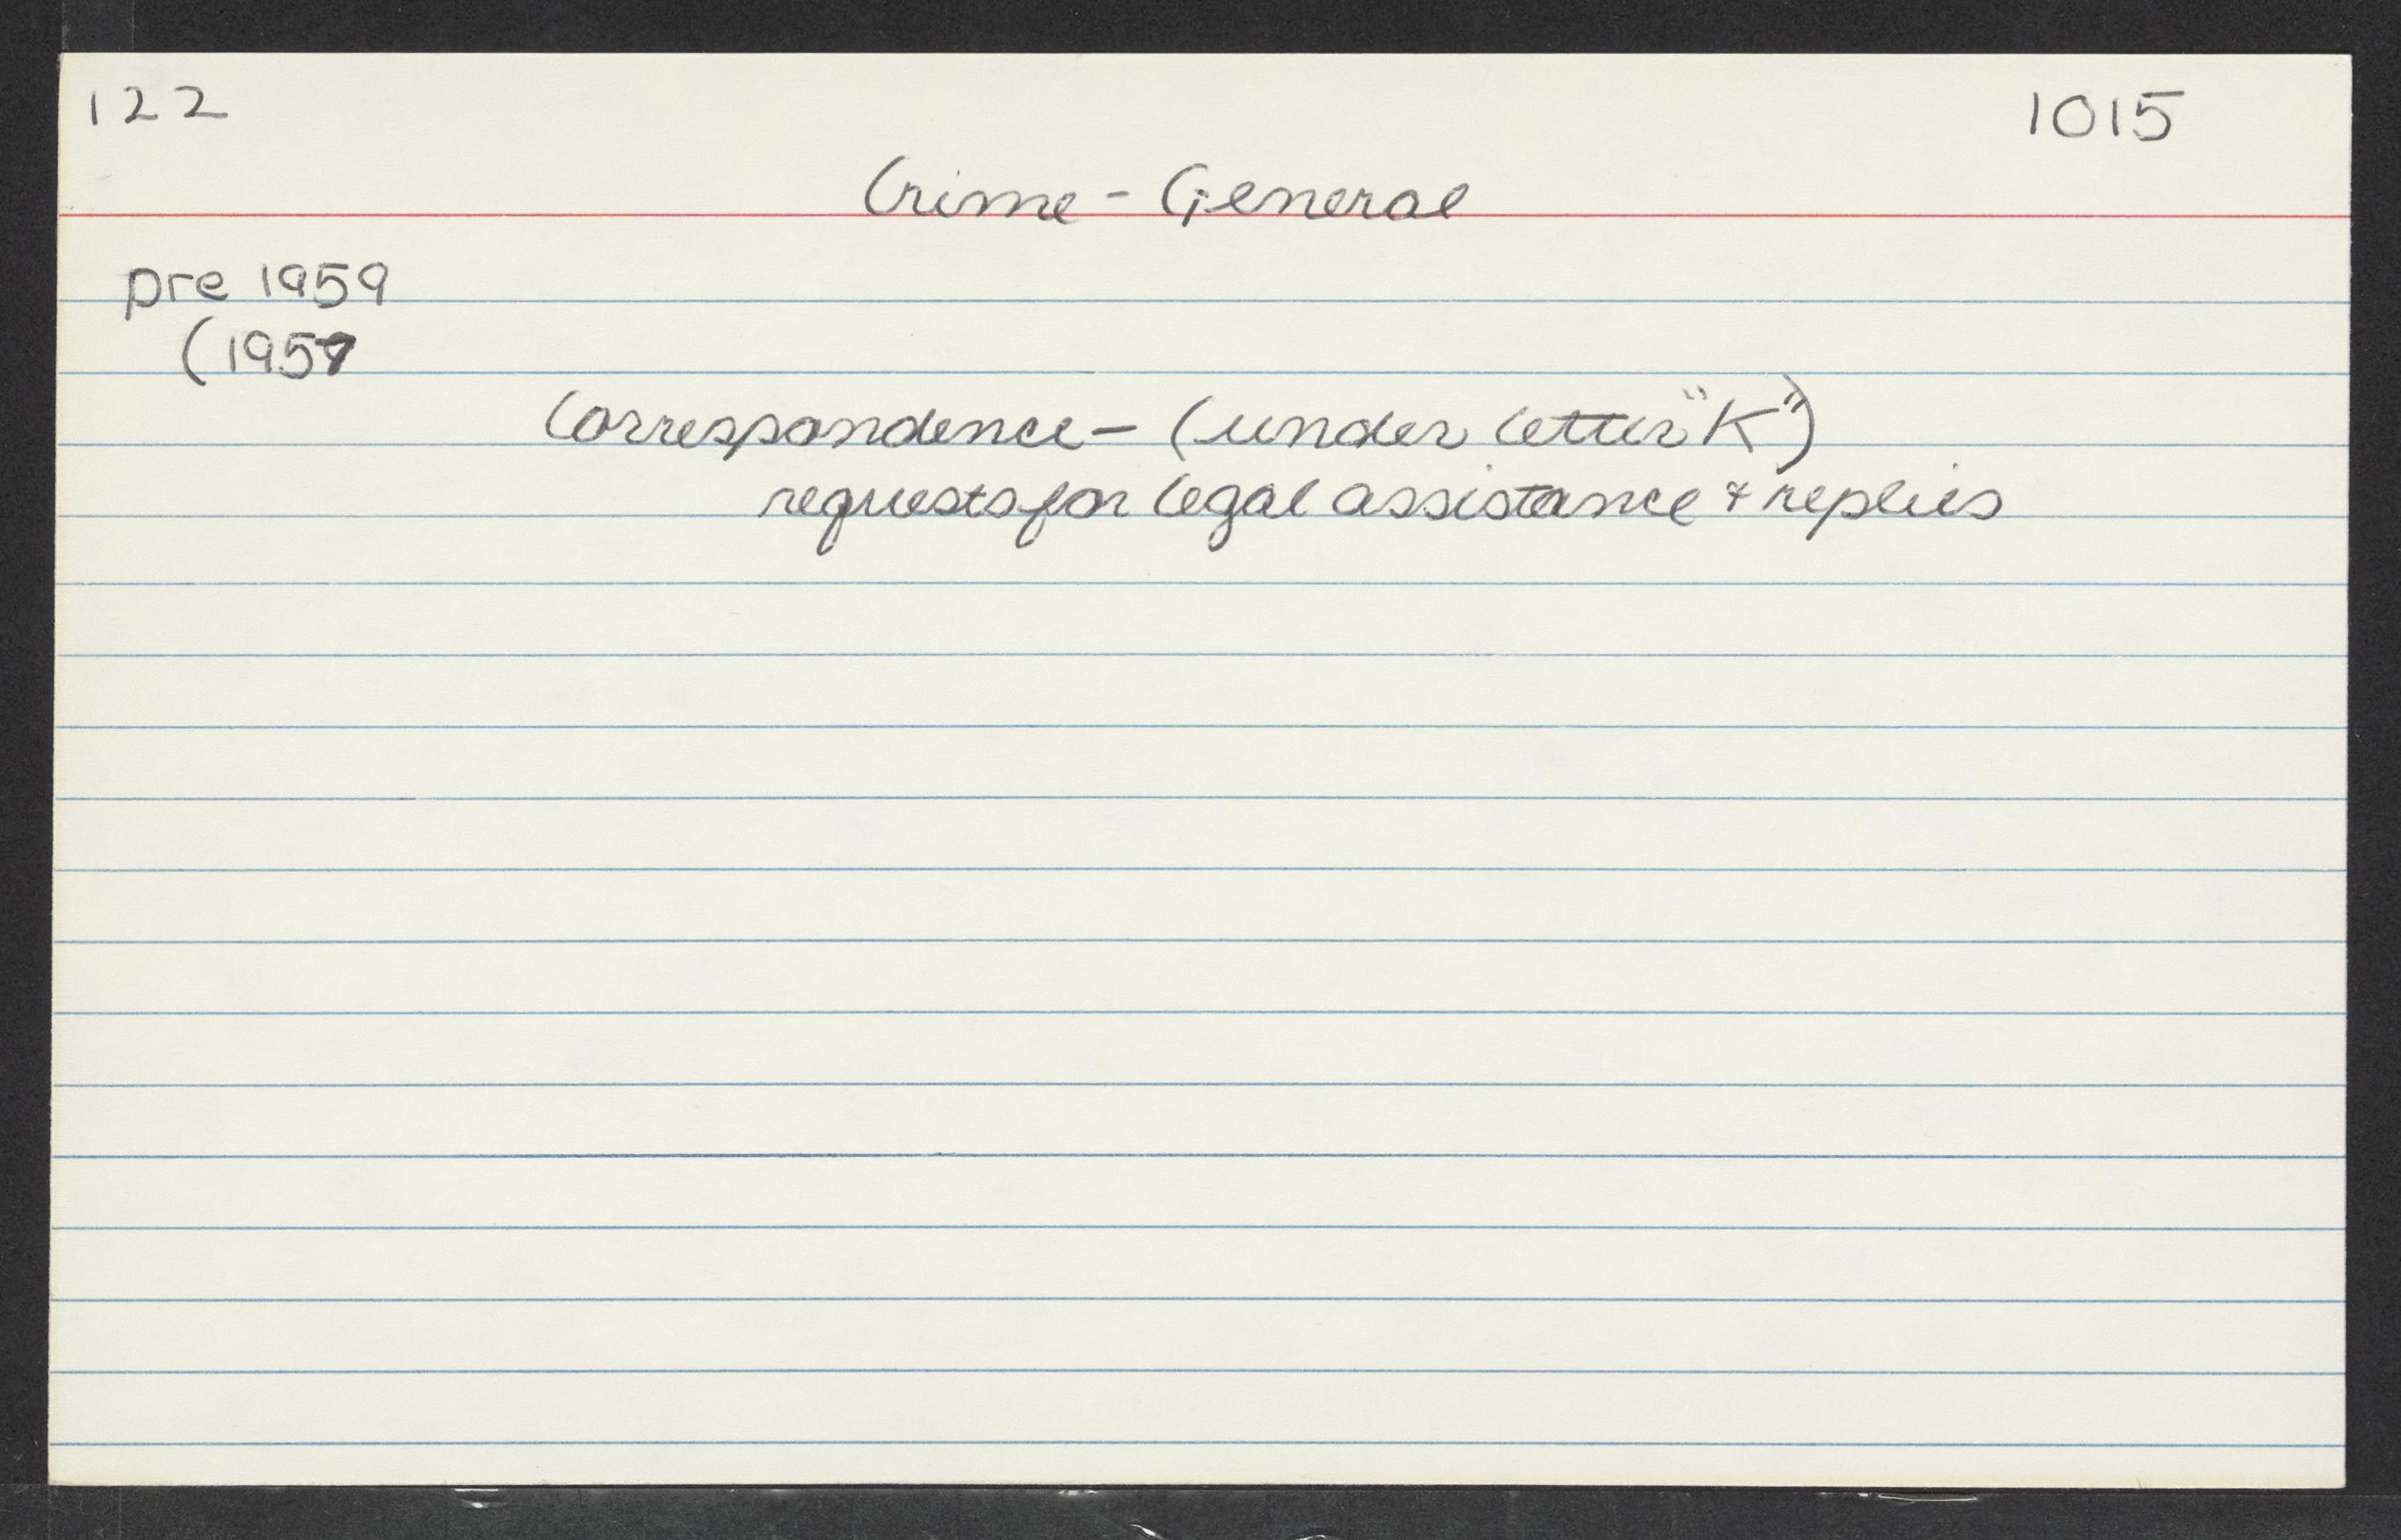 122 1015
Crime - General
pre 1959
(1957
Correspondence - (under letter "K")
requests for legal assistance & replies